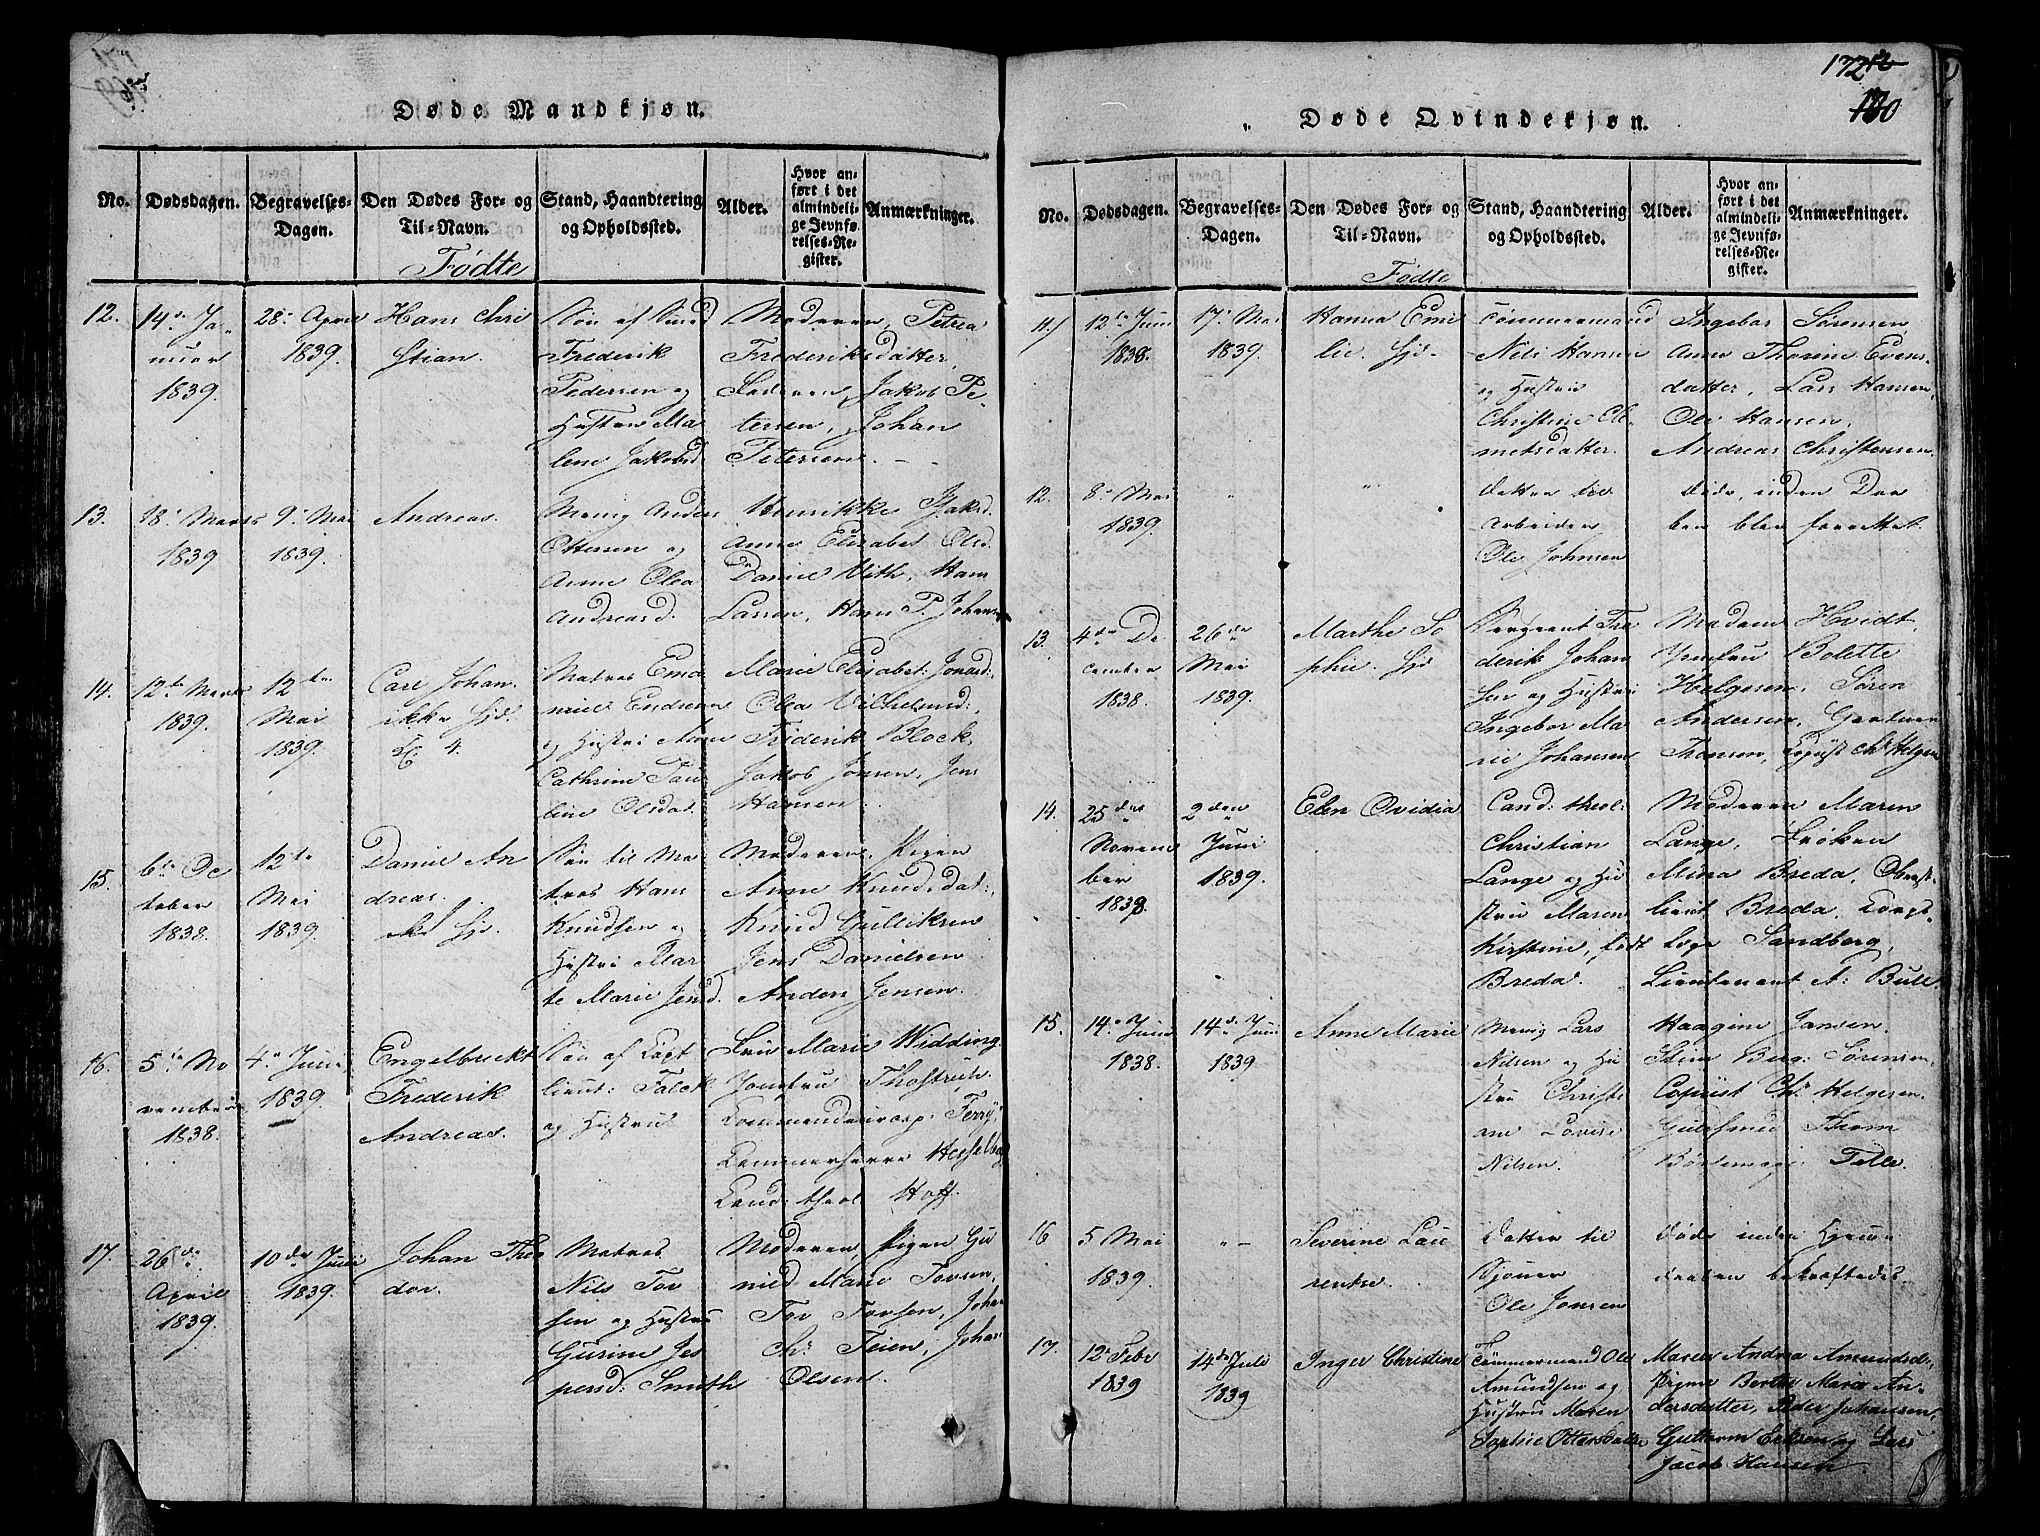 Døde Mandkjøn.
No.
Dødsdagen.
Begravelses-
Dagen.
Den Dødes For- og
Til-Navn.
Stand, Haandtering
og Opholdssted.
Alder.
Hvor an-
ført i det
almindeli-
ge Jevnfø-
relses-Re-
gister.
Anmærkninger.
Fødte
12.
14de Ja-
nuar
1839.
28de April
1839.
Hans Chri
stian.
Søn af
Frederik
Pedersen og
Hustru Ma
lene Jakobsd
Moderen, Petrea
Frederiksdatter,
Faderen, Jakob Pe-
tersen, Johan
Petersen. —
13.
18de Marts
1839
9de Mai
1839.
Andreas.
Anders
Ottersen og
Anne Olea
Andreasd.
Henrikke Isaksd.
Anne Elisabet Olsd.
Daniel Vith, Hans
Larsen, Hans P. Johans
14.
12te Marts
1839.
12te
Mai
1839.
Carl Johan.
ikke hjd.
4.
Matros Ema
nuel Endresen
og Hustru Anne
Cathrine Pau
line Olsdat.
Marie Elisabet Jonasd:
Olea Vilhelmsd:,
Friderik Block,
Jakob Jonsen, Jens
Hansen.
15.
6te Oc
tober
1838.
12te
Mai
1839.
Daniel An
dreas.
hjd.
Søn til Ma
tros Hans
Knudsen og
Hustru Mar
te Marie Jensd.
Moderen, Pigen
Anne Knudsdat:
Knud Gulliksen
Jens Danielsen
Anders Jensen.
16.
5te No
vember
1838.
4de Juni
1839.
Engelbrekt
Frederik
Andreas.
Søn af Capt
lieut: Falck
og Hustru
Fru Marie Widding
Jomfru Thostrup
Kommandeurcap: Ferry,
Kammerherre
Cand: theol Hoff.
17.
26de
April
1839.
10de Juni
1839.
Johan Theo
dor.
Matros
Nils Tor
sen og Hustru
Gurine Jes
persd: Smith
Moderen, Pigen Gu
nild Marie Torsen,
Tor Torsen, Johan
Chr. Feien, Johan
Olsen.
172
130
Døde Qvindekjøn.
No.
Dødsdagen.
Begravelses-
Dagen.
Den Dødes For- og
Til-Navn.
Stand, Haandtering
og Opholdssted.
Alder.
Hvor an-
ført i det
almindeli-
ge Jevnfø-
relses-Re-
gister.
Anmærkninger.
Fødte
11.
12te Juni
1838.
17de Mai
1839.
Hanna Emi
lie. hjd.
Tømmermand
Nels Hansen
og Hustru
Christine Cle-
metsdatter.
Ingebor Sørensen,
Anne Thorine Evens-
datter, Lars Hansen,
Ole Hansen,
Andreas Christensen.
12.
8de Mai
1839.
"
"
Datter til
Arbeider
Ole Johnsen
Døde, inden Daa
ben blev forrettet.
13.
4de De
cember
1838.
26de
Mai
1839.
Marthe So
phie. hjd
Sergeant Fre
derik Johan
sen og Hustru
Ingebor Ma
rie Johansen
Madam Hvidt,
Jomfru Bolette
Helgesen, Søren
Andersen, Gartner
Thonsen, Copiist Chr. Helgesen
14.
25de
Novem
ber
1838.
2den
Juni
1839.
Elen Ovidia
Cand: theol:
Christian
Lange og Hu
stru Maren
Kirstine, født
Breda.
Moderen Maren
Lange, Frøken
Mina Breda, Oberst-
lieut Breda, Korps-
læge Sandberg,
Lieutenant A: Bull.
15.
14de Juni
1838.
14de Juni
1839
Anne Marie
Menig Lars
Nilsen og Hu
stru Christi
ane Lovise
Nilsen.
Haagine Jansen.
Stine Berg: Sørensen
Copiist Chr. Helgesen.
Guldsmed Thom
Bøssemager Telle.
16
5 Mai
1839.
" —
Severine Lau
rentse.
Datter til
Ole Jonsen
Døde inden Hjemme
daaben bekræftedes.
17.
12te Febr
1839
14de Juli
1839
Inger Christine
Tømmermand Ole
Amundsen og
Hustru Maren
Sophie Ottersdatter
Maren Andrea Amundsd.,
Pigen Berthe Marie An-
dersdatter, Peder Johansen,
Guttorm Eriksen og Lars
Jacob Hansen.